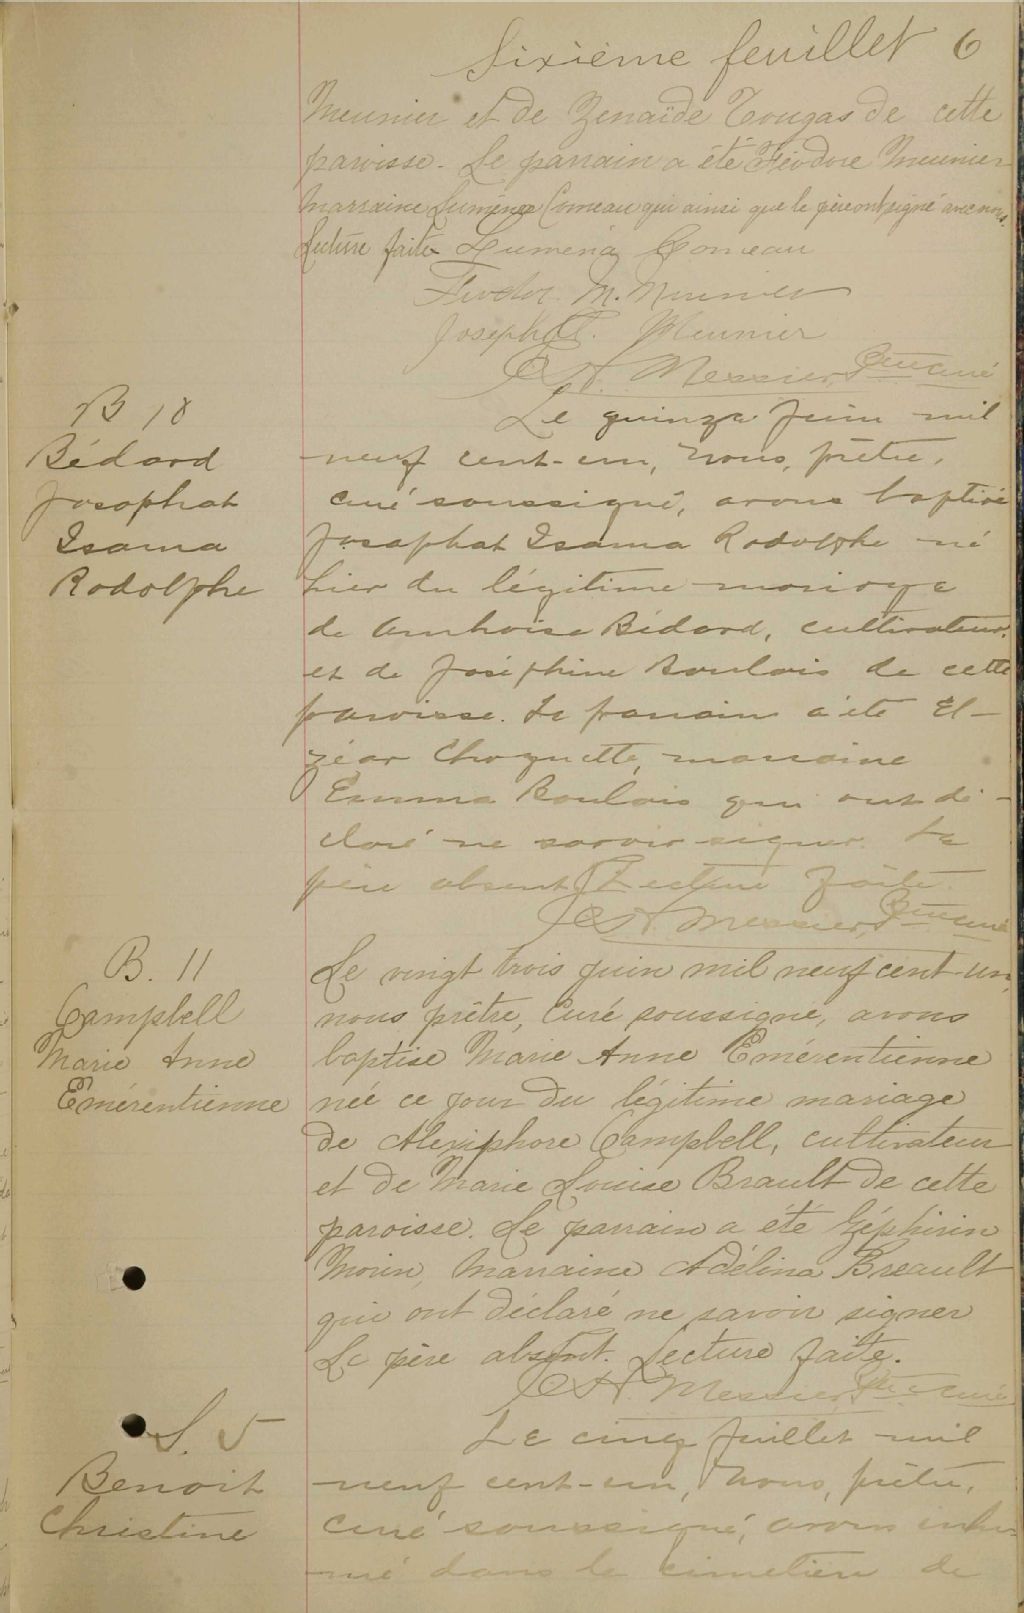 Sixième feuillet 6
Meunier et de Zenaïde Tougas de cette
paroisse. Le parrain a été Féodore Meunier
Marraine Lumena Comeau qui ainsi que le père ont signé avec nous.
Lecture faite Lumena Comeau
Feodor M. Meunier
Joseph Meunier
Messier Ptre curé
B 10
Bédard
Josaphat
Isama
Rodolphe
Le quinze Juin mil
neuf cent-un, Nous, prêtre,
curé soussigné, avons baptisé
Josaphat Isama Rodolphe né
hier du légitime mariage
de Amboise Bédard, cultivateur,
et de Joséphine Boulais de cette
paroisse. Le parrain a été El-
zéar Choquette, marraine
Emma Boulais qui ont dé-
claré ne savoir signer. Le
père absent Lecture faite
Messier Ptre curé
B. 11
Campbell
Marie Anne
Emérentienne
Le vingt trois juin mil neuf cent-un,
nous prêtre, Curé soussigné, avons
baptise Marie Anne Emérentienne
née ce jour du légitime mariage
de Alexiphore Campbell, cultivateur
et de Marie Louise Brault de cette
paroisse. Le parrain a été Zéphirin
Morin, Marraine Adélina Breault
qui ont déclaré ne savoir signer
Le père absent. Lecture faite.
Messier Ptre curé
S. 5
Benoit
Christine
Le cinq Juillet mil
neuf cent-un, Nous, prêtre,
curé soussigné, avons inhu-
mé dans le cimetière de